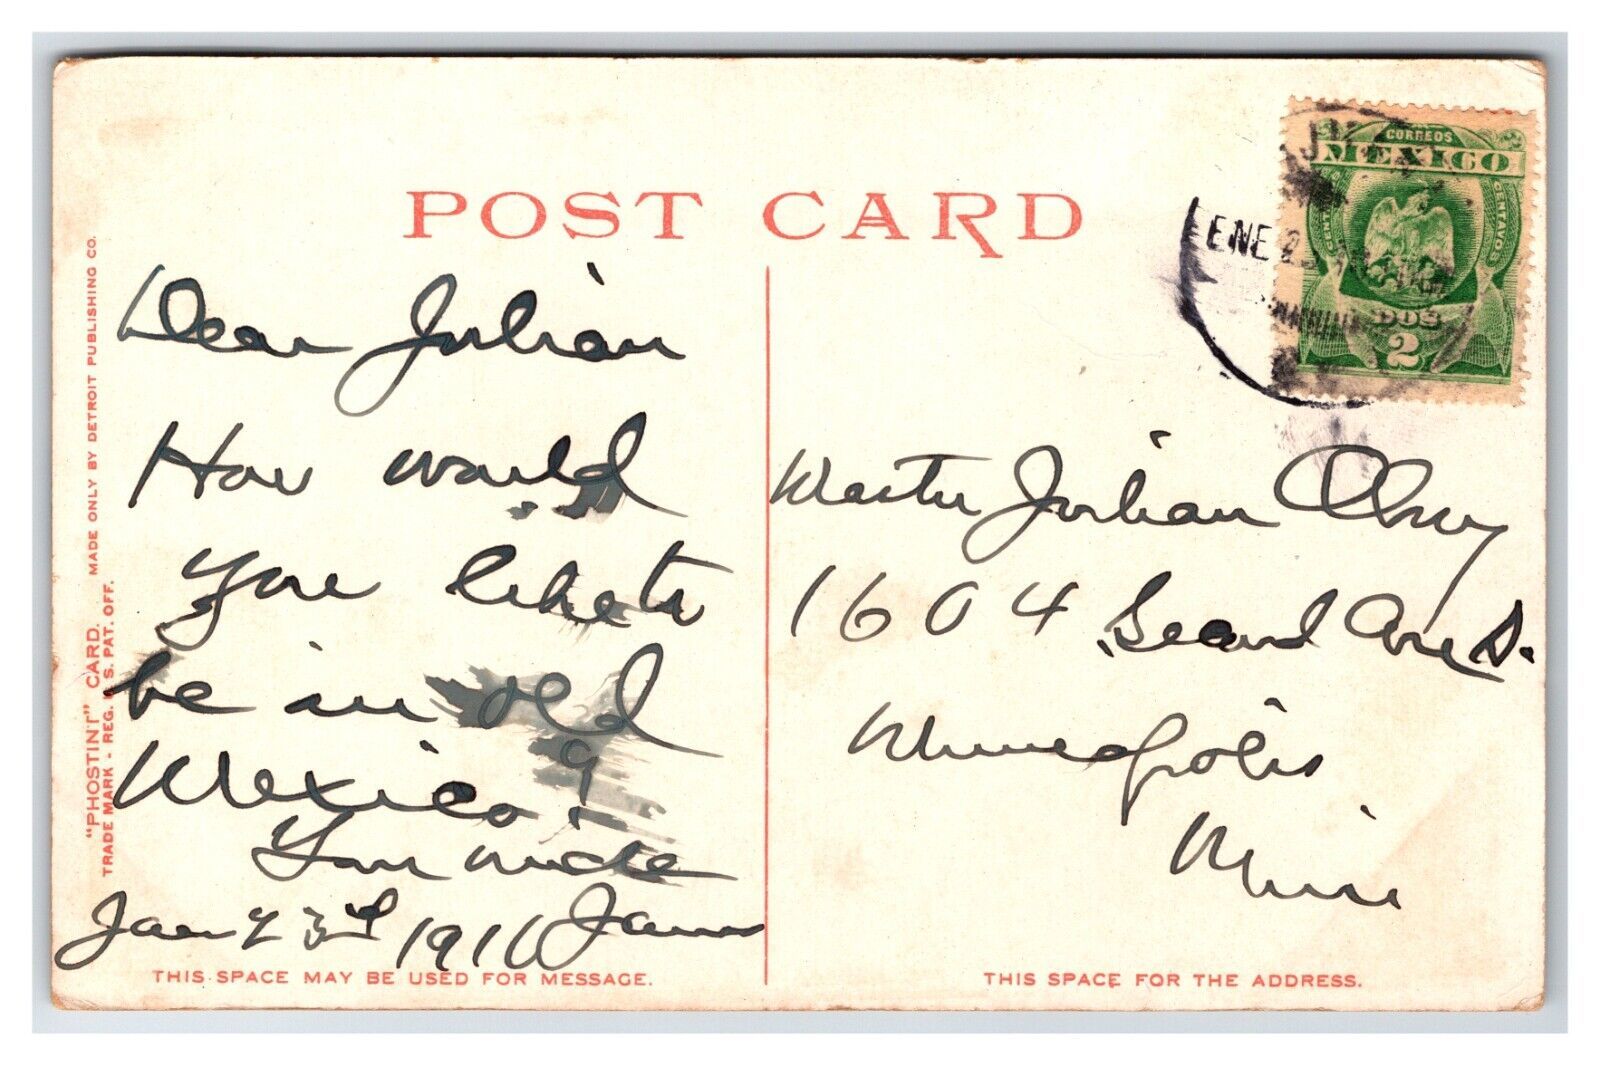 POST CARD
"PHOSTINT" CARD. MADE ONLY BY DETROIT PUBLISHING CO.
TRADE MARK - REG. U. S. PAT. OFF.
Dear Julian
How would
you like to
be in old
Mexico?
Your uncle
James
Jany 23rd 1910
THIS SPACE MAY BE USED FOR MESSAGE.
CORREOS
MEXICO
CENTAVOS
DOS
2
ENE
Master Julian
1604 Beard Ave S.
Minneapolis
Minn
THIS SPACE FOR THE ADDRESS.